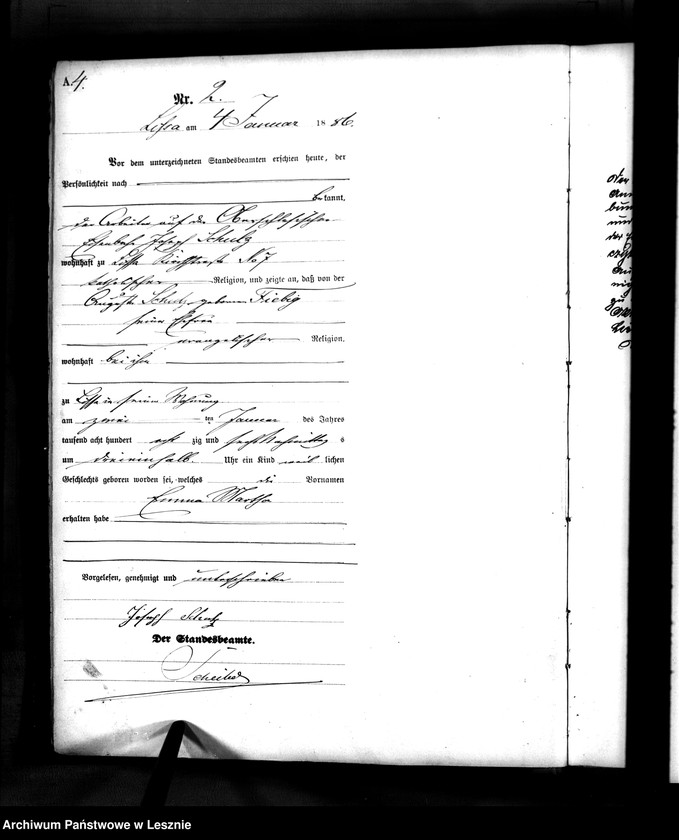 A. 4.
Nr. 2.
Lissa am 4 Januar 1886.
Vor dem unterzeichneten Standesbeamten erschien heute, der
Persönlichkeit nach
bekannt,
der Arbeiter auf der Oberschlesischen
Eisenbahn Joseph Schulz
wohnhaft zu Lissa No 7
katholischer Religion, und zeigte an, daß von der
Auguste Schulz, geborenen Fiebig
seiner Ehefrau
evangelischer Religion,
wohnhaft bei ihm
zu Lissa in seiner Wohnung
am zwei ten Januar des Jahres
tausend acht hundert acht zig und sechs Nachmittag s
um dreieinhalb Uhr ein Kind weib lichen
Geschlechts geboren worden sei, welches die Vornamen
Emma Martha
erhalten habe
Vorgelesen, genehmigt und unterschrieben
Joseph Schulz
Der Standesbeamte.
Archiwum Państwowe w Lesznie